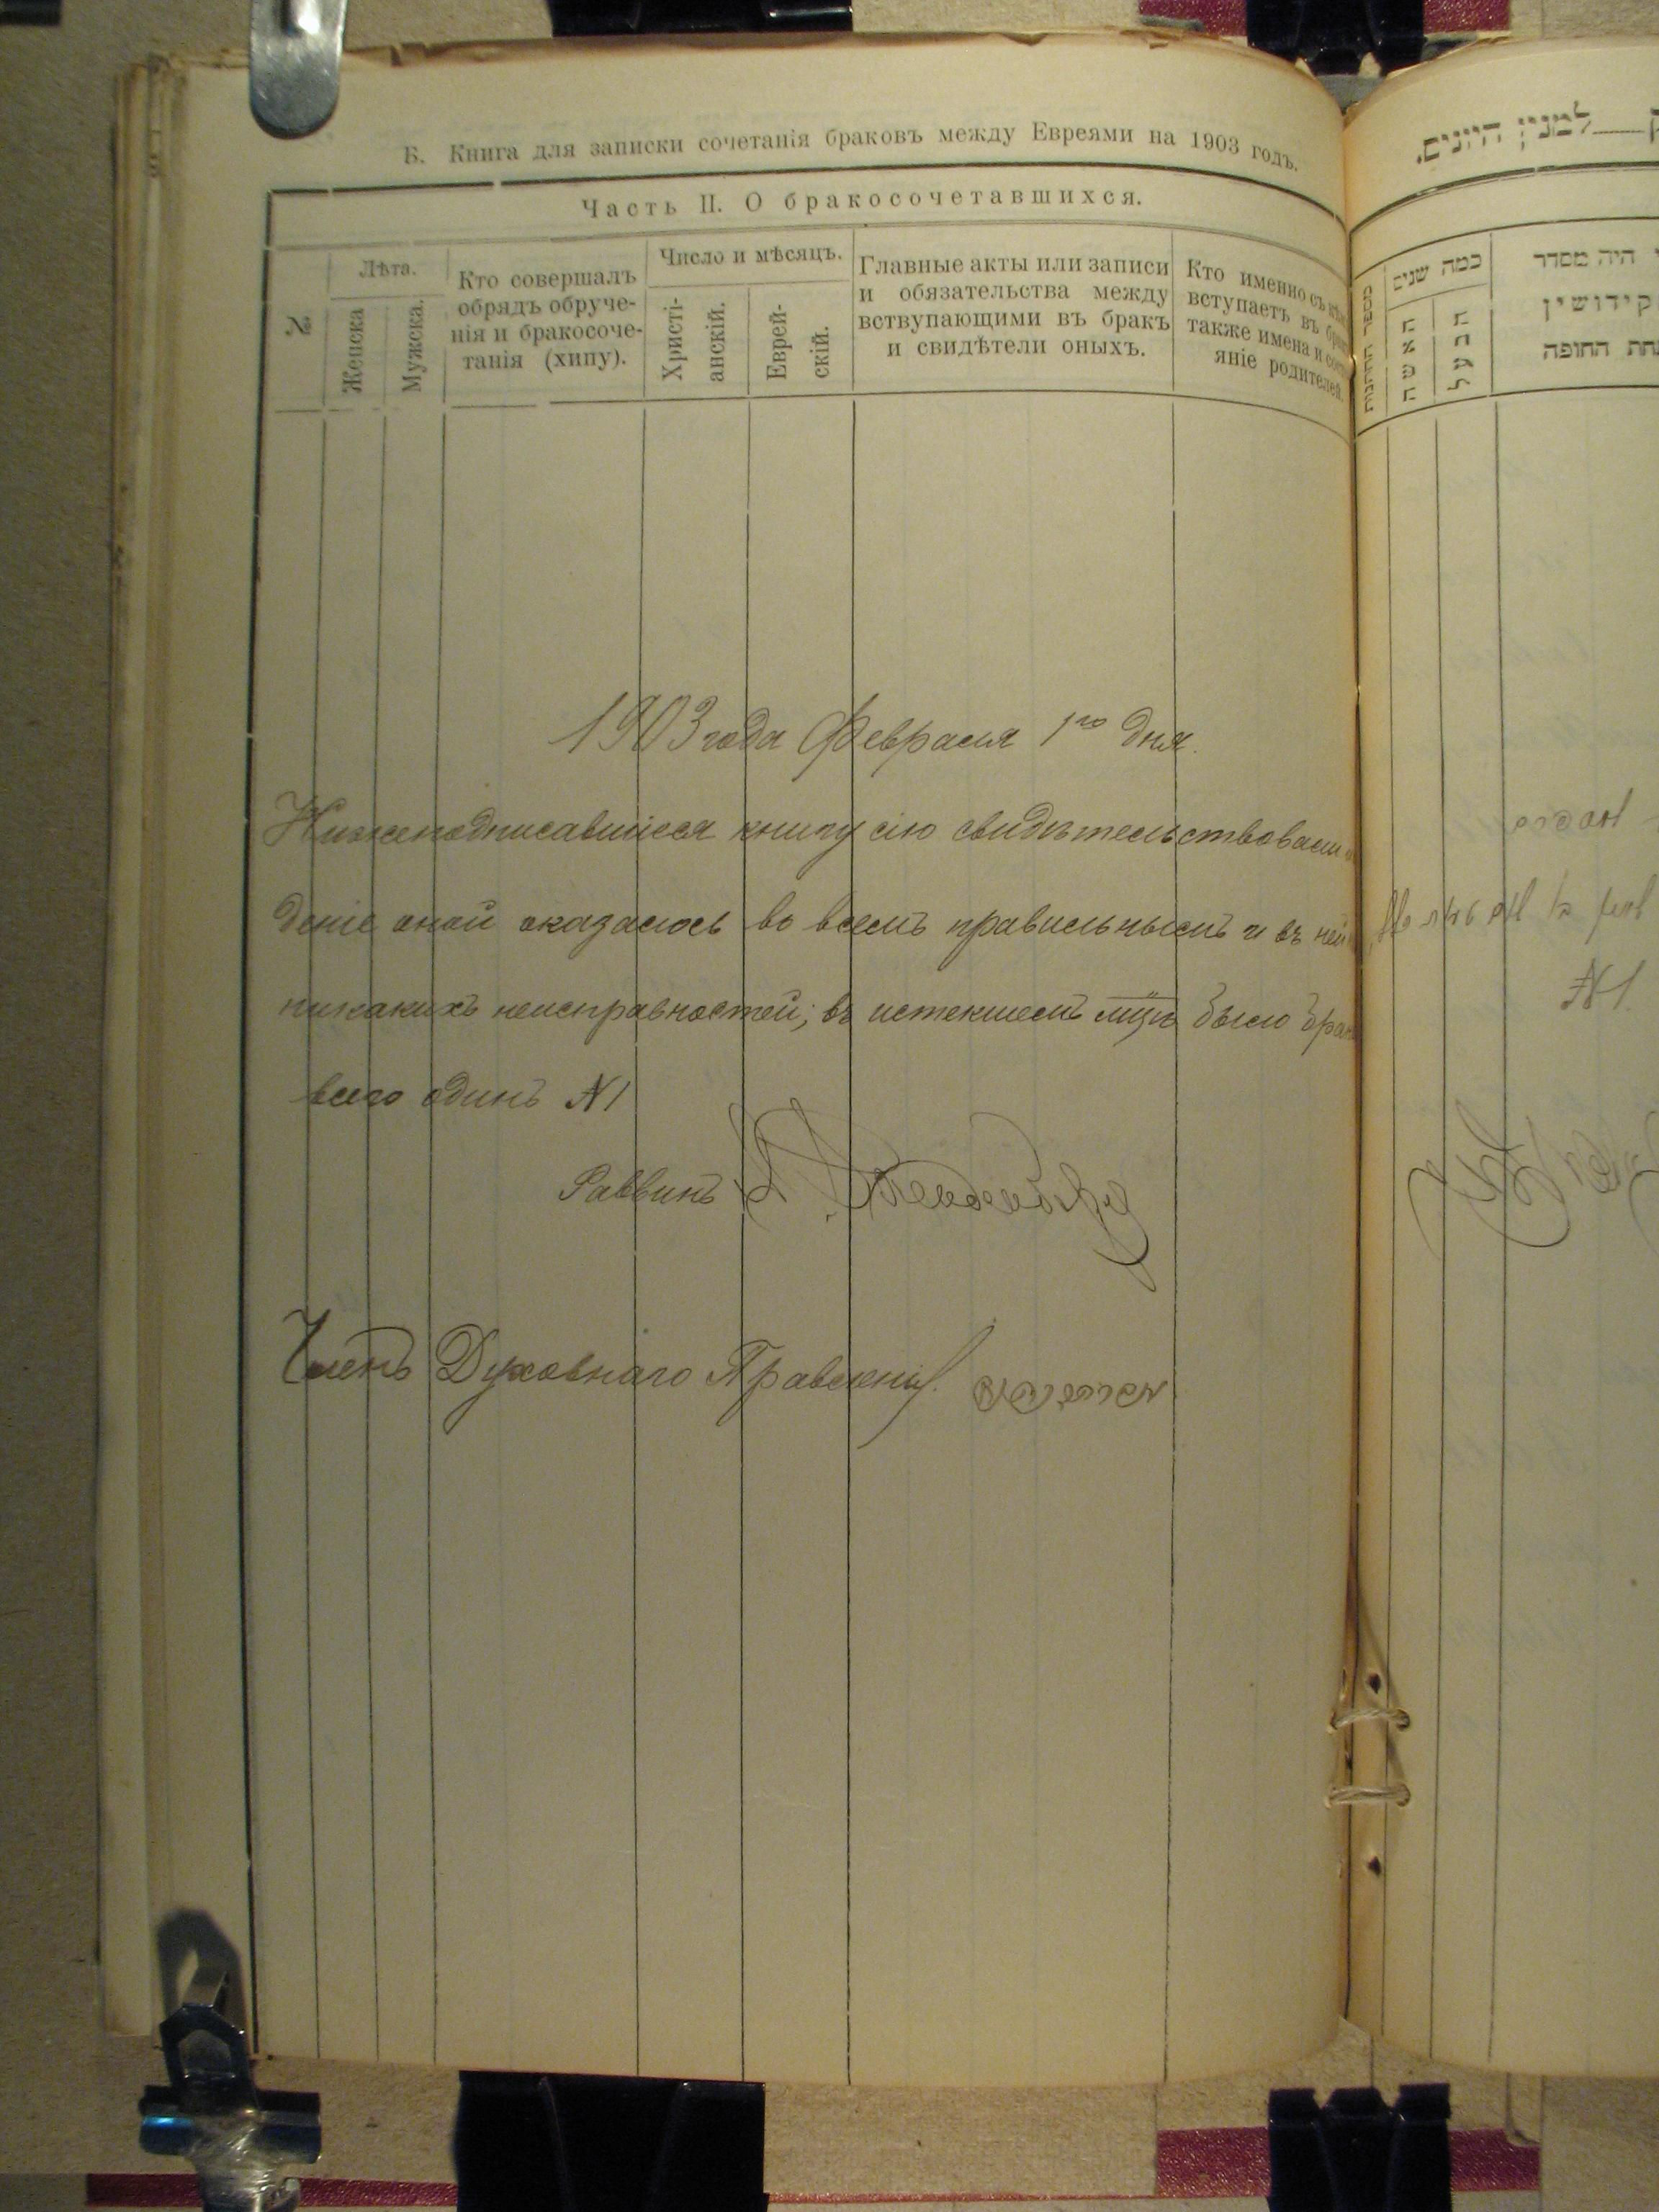 В. Книга для записки сочетанія браковъ между Евреями на 1903 годъ.
Часть II. О бракосочетавшихся.
№
Лѣта.
Женска
Мужска.
Кто совершалъ
обрядъ обруче-
нія и бракосоче-
танія (хипу).
Число и мѣсяцъ.
Христі-
анскій.
Еврей-
скій.
Главные акты или записи
и обязательства между
вствупающими въ бракъ
и свидѣтели оныхъ.
Кто именно съ кѣмъ
вступаетъ въ бракъ
также имена и состо
яніе родителей.
1903 года Февраля 1го дня.
Нижеподписавшіеся книгу сію свидѣтельствовали и
деніе оной оказалось во всемъ правильнымъ и въ ней
никакихъ неисправностей; въ истекшемъ мцѣ было брак
всего одинъ №1
Раввинъ
Членъ Духовнаго Правленія
למנין היונים.
מספר החתונות
כמה שנים
האשה
הבעל
היה מסדר
קידושין
תחת החופה
№1.